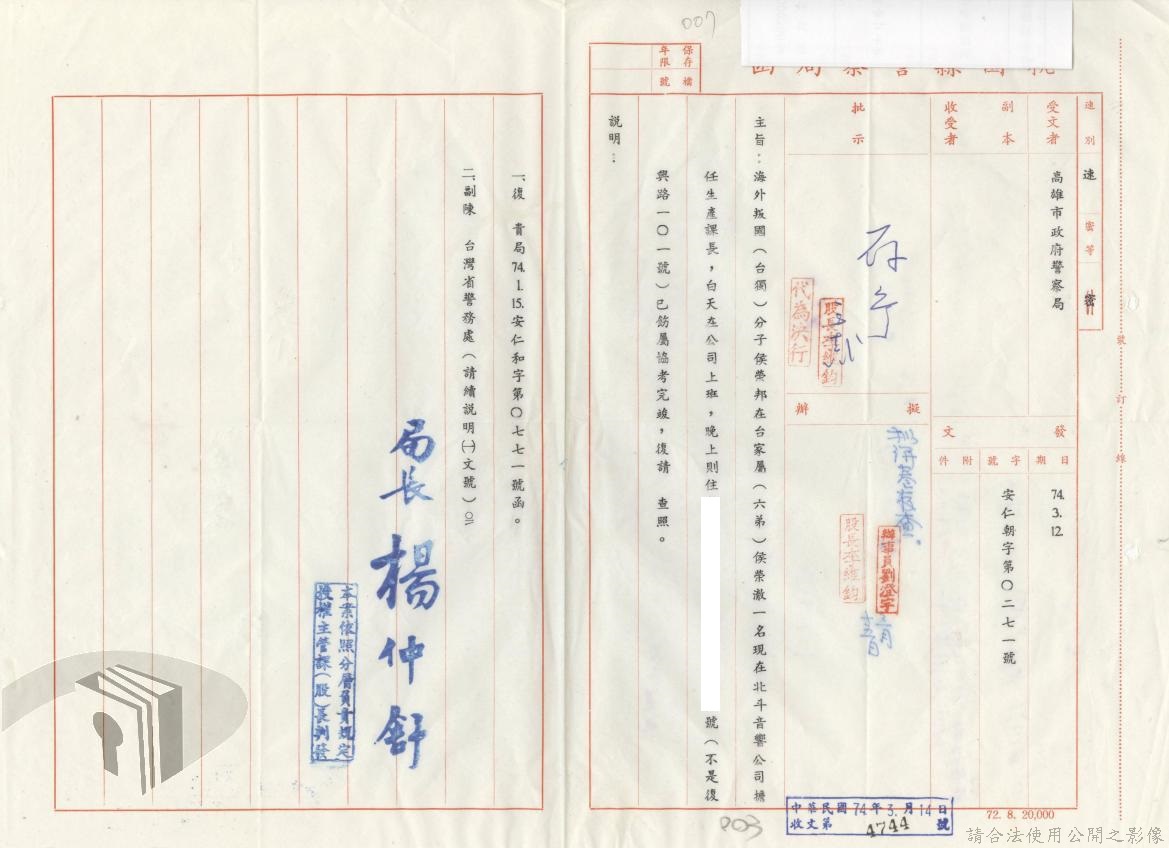 007
桃園縣警察局函
保存年限
檔號
速別
速
密等
密
受文者
高雄市政府警察局
副本
收受者
發文
日期
74.3.12.
字號
安仁朝字第〇二七一號
附件
批示
存
代為決行
擬辦
辦事員劉澄宇
主旨：海外叛國（台獨）分子侯榮邦在台家屬（六弟）侯榮澈一名現在北斗音響公司擔
任生產課長，白天在公司上班，晚上則住
號（不是復
興路一〇一號）已飭屬協考完竣，復請 查照。
說明：
一、復 貴局74.1.15.安仁和字第〇七七一號函。
二、副陳 台灣省警務處（請續說明㈠文號）
局長 楊仲舒
本案依照分層負責規定
授權主管課（股）長判發
號
訂
線
中華民國74年3月14日
收文第4744號
72. 8. 20,000
003
請合法使用公開之影像